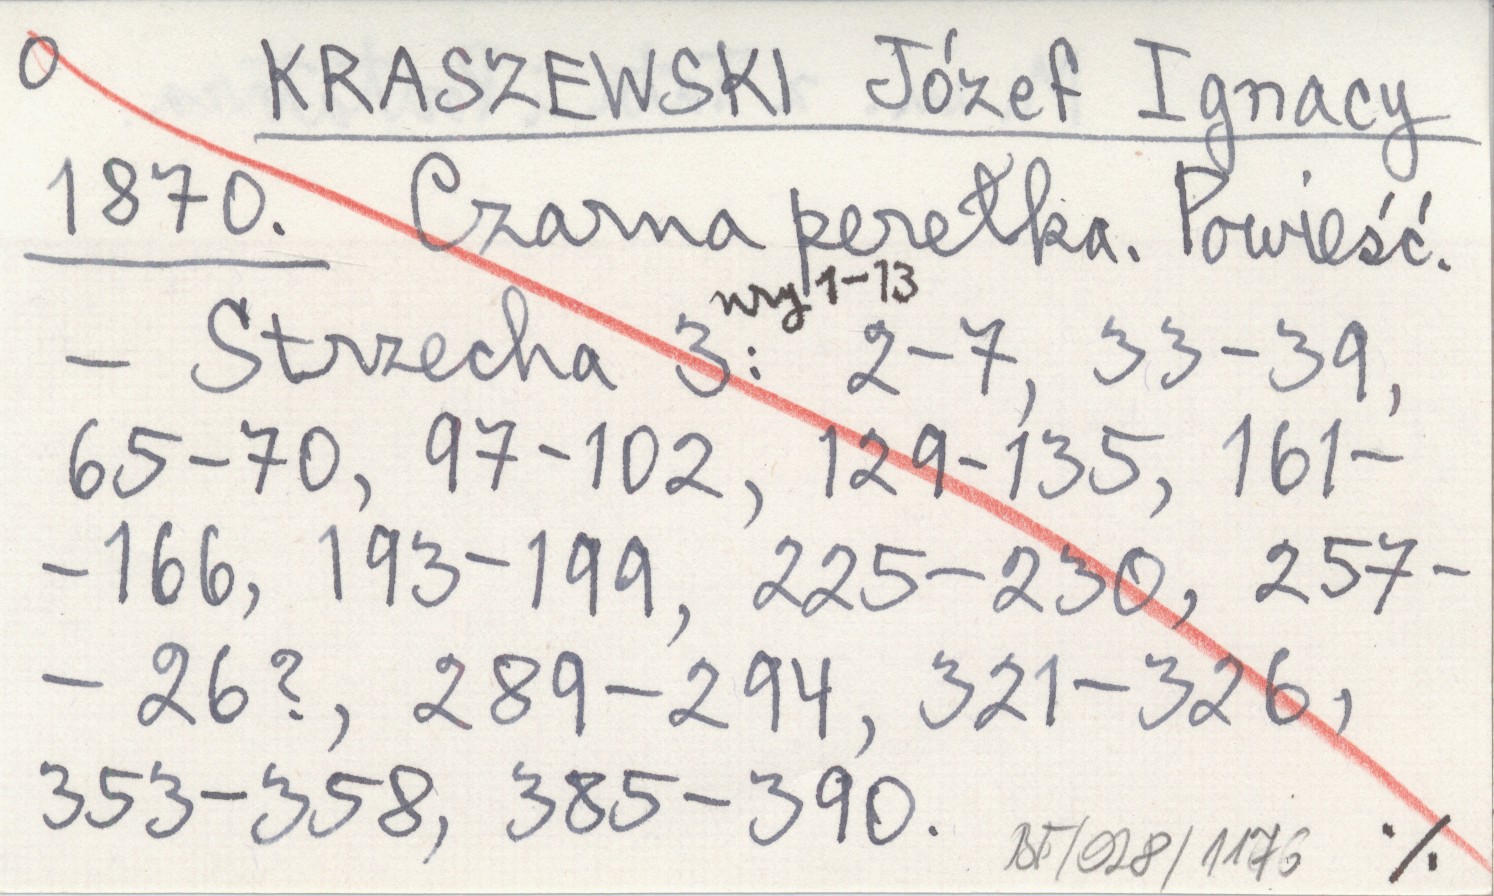 0 KRASZEWSKI Józef Ignacy
1870. Czarna perełka. Powieść.
nry 1-13
- Strzecha 3: 2-7, 33-39,
65-70, 97-102, 129-135, 161-
-166, 193-199, 225-230, 257-
- 26?, 289-294, 321-326,
353-358, 385-390.
BF/028/1176 ·/.